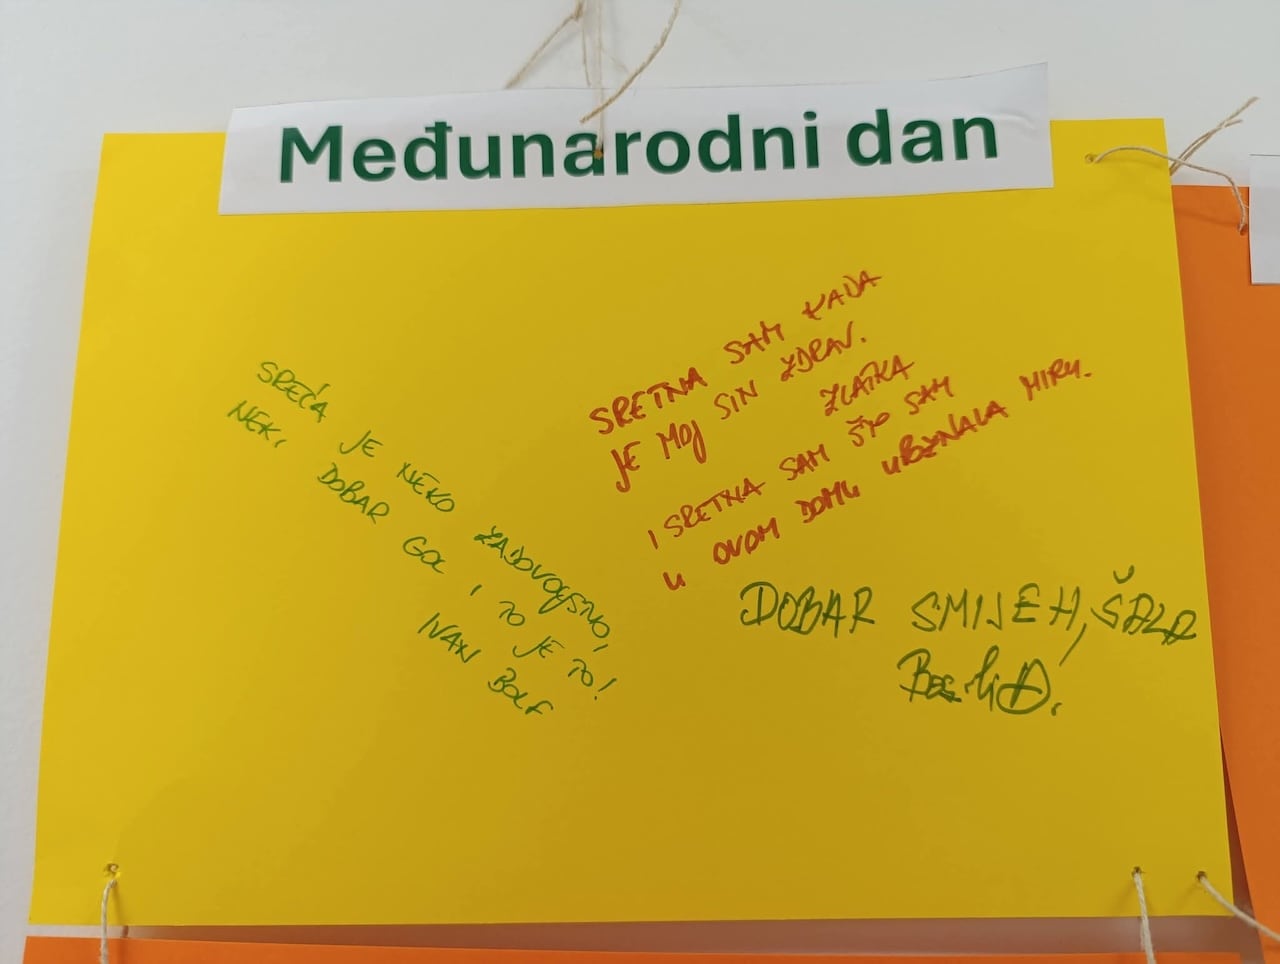 Međunarodni dan
SREĆA JE NEKO ZADOVOLJSTVO,
NEKI DOBAR GOL I TO JE TO!
IVAN BOLF
SRETNA SAM KADA
JE MOJ SIN ZDRAV.
ZLATKA
I SRETNA SAM ŠTO SAM
U OVOM DOMU UPOZNALA MIRU.
DOBAR SMIJEH, ŠALA